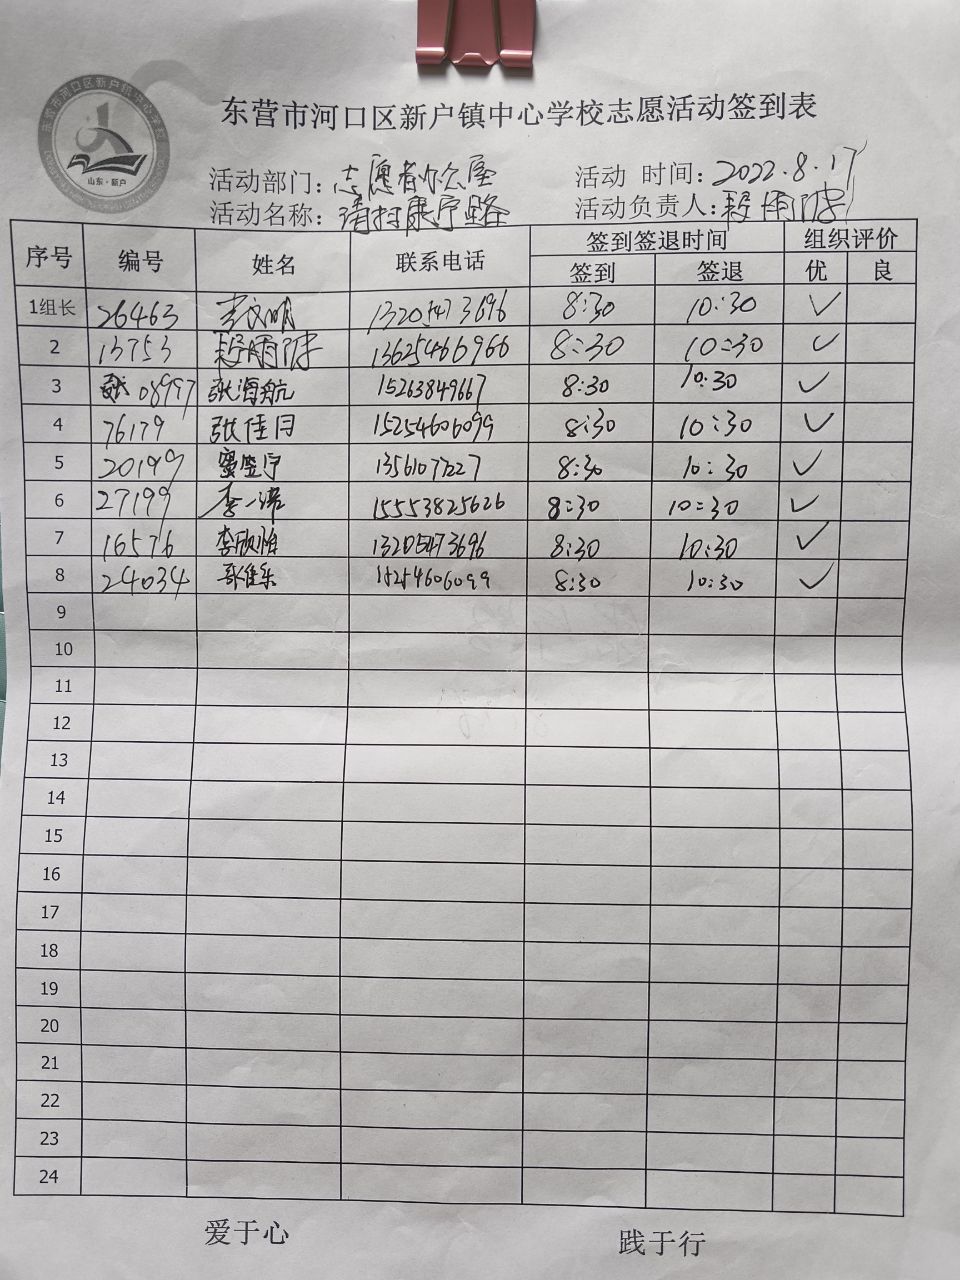 东营市河口区新户镇中心学校
山东·新户
东营市河口区新户镇中心学校志愿活动签到表
活动部门：志愿者办公室 活动 时间：2022.8.17
活动名称：清扫康宁路 活动负责人：段雨
序号 编号 姓名 联系电话 签到签退时间 组织评价
签到 签退 优 良
1组长 26463 李文明 13205473696 8:30 10:30 ✓
2 13753 段雨 13625466966 8:30 10:30 ✓
3 08997 张海航 15263849667 8:30 10:30 ✓
4 76179 张佳月 15254606099 8:30 10:30 ✓
5 20199 13561077227 8:30 10:30 ✓
6 27199 李一诺 15553825626 8:30 10:30 ✓
7 16576 李欣怡 13205473696 8:30 10:30 ✓
8 24034 张佳乐 15254606099 8:30 10:30 ✓
9
10
11
12
13
14
15
16
17
18
19
20
21
22
23
24
爱于心 践于行